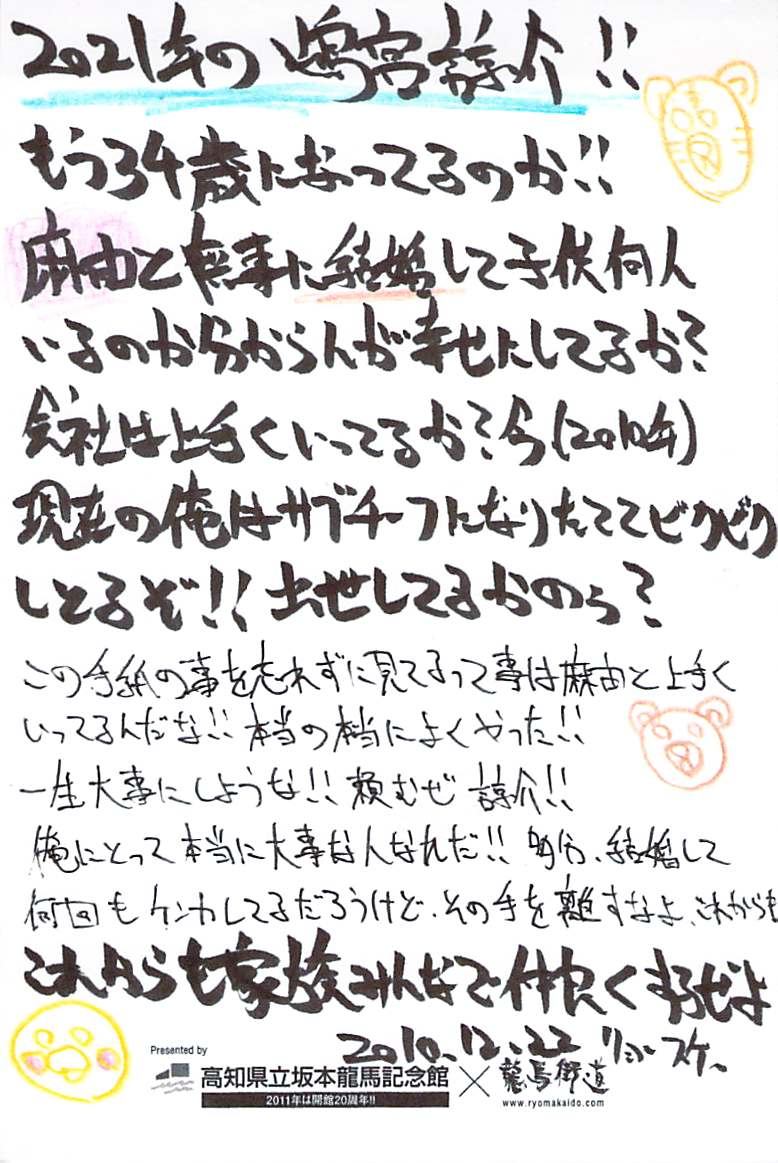 2021年の 嶋宮諄介!!
もう34歳になってるのか!!
麻由と無事に結婚して子供何人
いるのか分からんが幸せにしてるか?
会社は上手くいってるか?今(2010年)
現在の俺はサブチーフになりたててビクビク
しとるぞ!! 出世してるかのぅ?
この手紙の事を忘れずに見てるって事は麻由と上手く
いってるんだな!! 本当の本当によくやった!!
一生大事にしような!! 頼むぜ 諄介!!
俺にとって本当に大事な人なんだ!! 多分、結婚して
何回もケンカしてるだろうけど、その手を離すなよ、これからも
これからも家族みんなで仲良くするぜよ
2010.12.22 リョースケ、
Presented by
高知県立坂本龍馬記念館 × 龍馬街道
2011年は開館20周年!!
www.ryomakaido.com